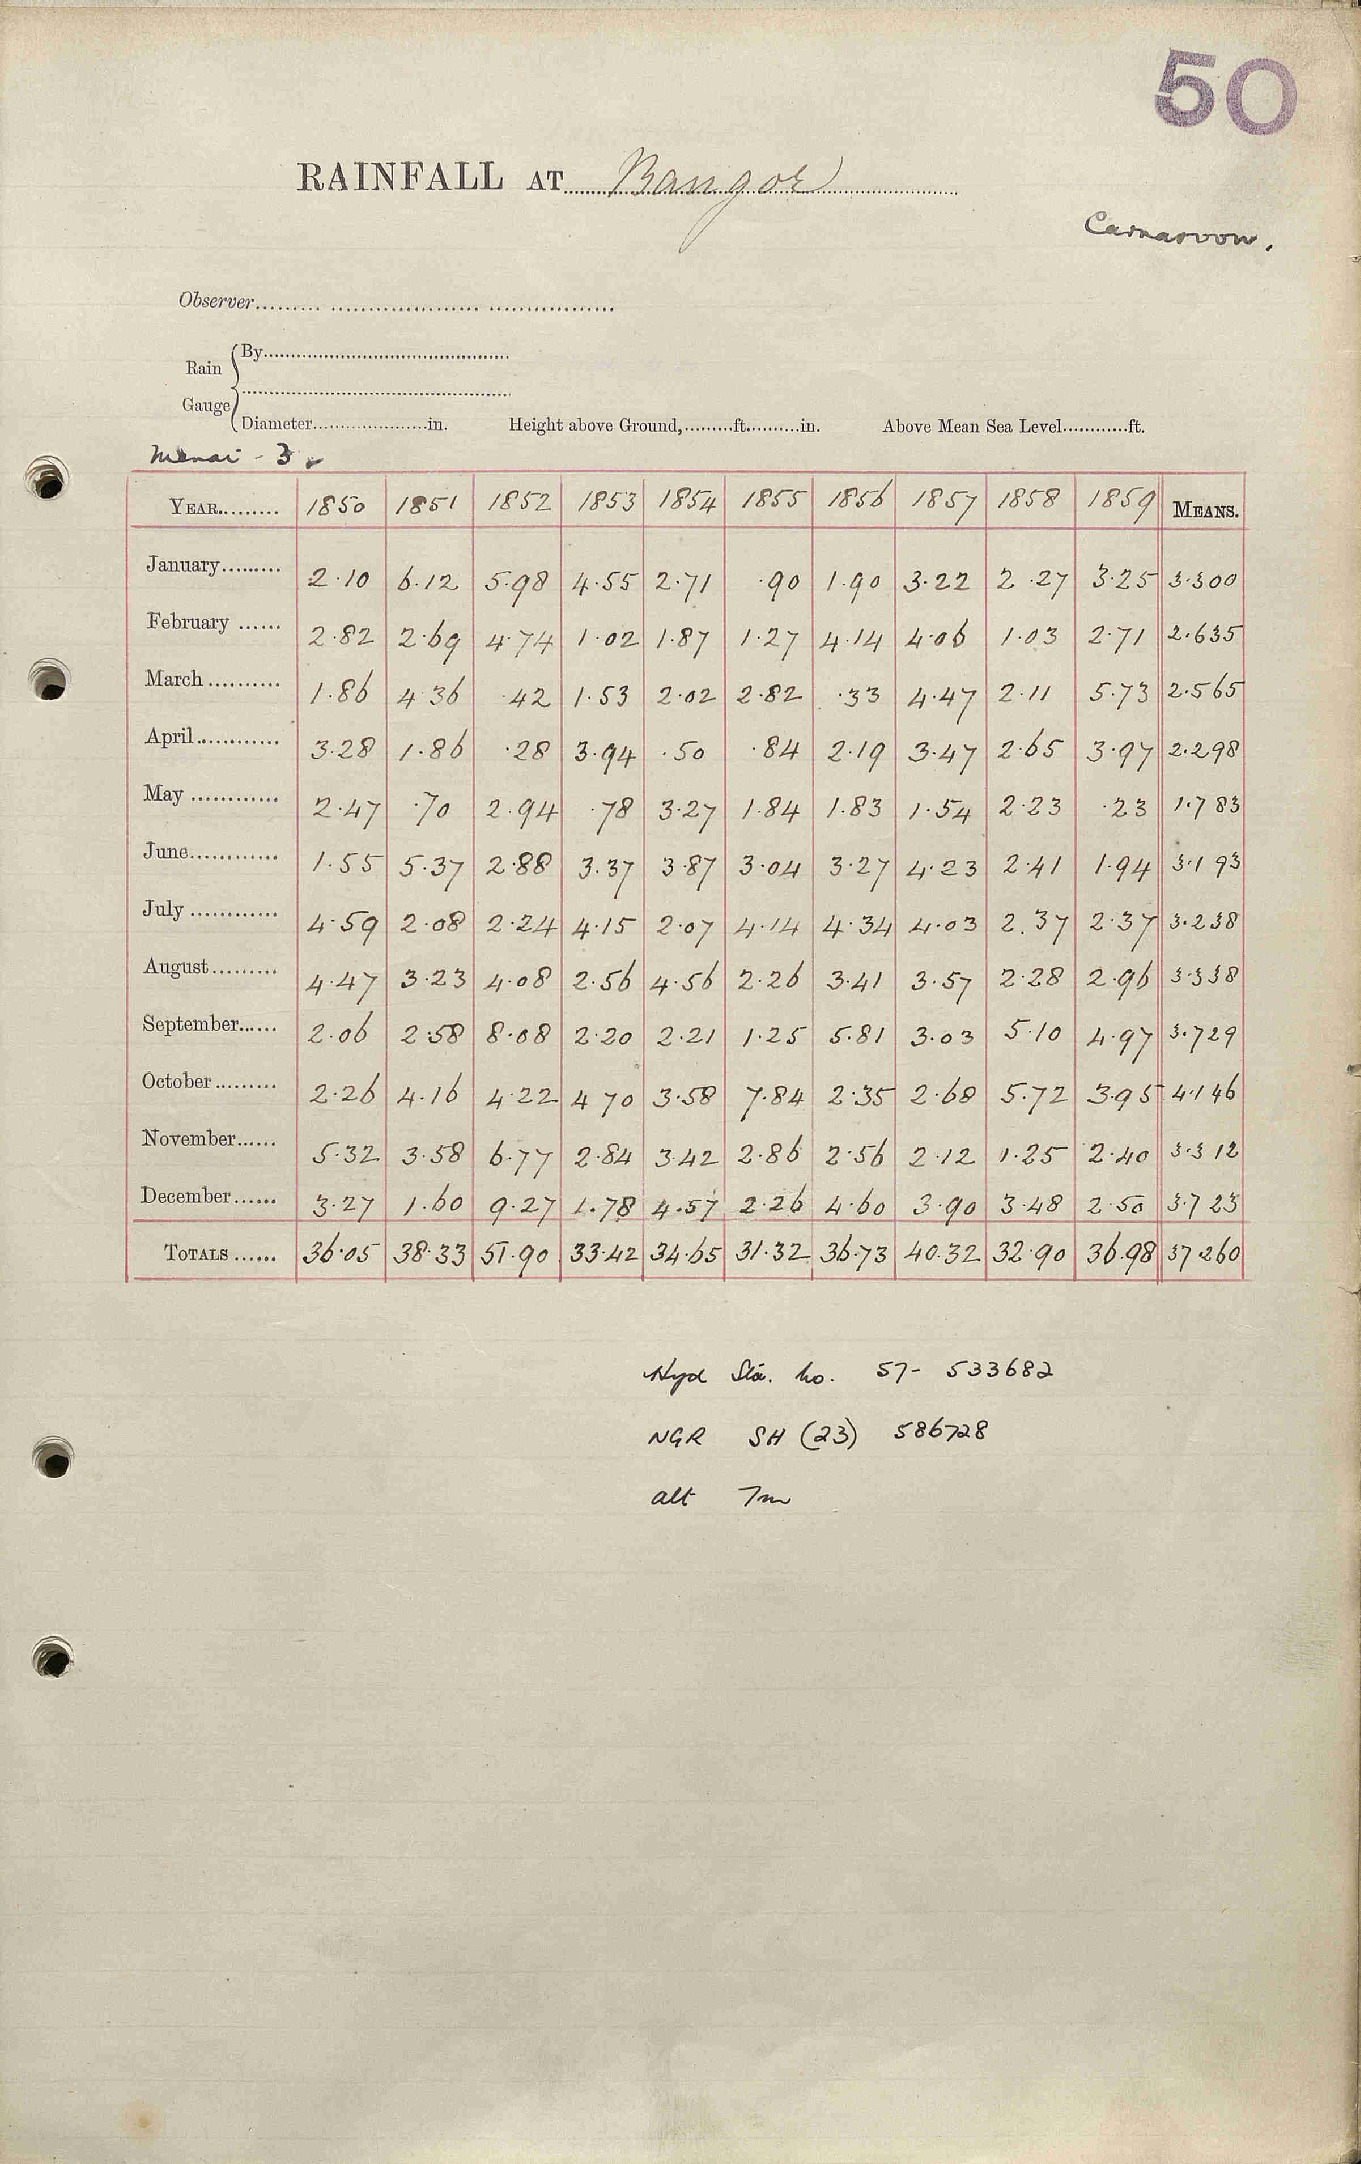 50
RAINFALL AT Bangor
Carnarvon.
Observer
Rain Gauge
By
Diameter in. Height above Ground, ft. in. Above Mean Sea Level ft.
Menai - 3
YEAR 1850 1851 1852 1853 1854 1855 1856 1857 1858 1859 MEANS.
January 2.10 6.12 5.98 4.55 2.71 .90 1.90 3.22 2.27 3.25 3.300
February 2.82 2.69 4.74 1.02 1.87 1.27 4.14 4.06 1.03 2.71 2.635
March 1.86 4.36 .42 1.53 2.02 2.82 .33 4.47 2.11 5.73 2.565
April 3.28 1.86 .28 3.94 .50 .84 2.19 3.47 2.65 3.97 2.298
May 2.47 .70 2.94 .78 3.27 1.84 1.83 1.54 2.23 .23 1.783
June 1.55 5.37 2.88 3.37 3.87 3.04 3.27 4.23 2.41 1.94 3.193
July 4.59 2.08 2.24 4.15 2.07 4.14 4.34 4.03 2.37 2.37 3.238
August 4.47 3.23 4.08 2.56 4.56 2.26 3.41 3.57 2.28 2.96 3.338
September 2.06 2.58 8.08 2.20 2.21 1.25 5.81 3.03 5.10 4.97 3.729
October 2.26 4.16 4.22 4.70 3.58 7.84 2.35 2.68 5.72 3.95 4.146
November 5.32 3.58 6.77 2.84 3.42 2.86 2.56 2.12 1.25 2.40 3.312
December 3.27 1.60 9.27 1.78 4.57 2.26 4.60 3.90 3.48 2.50 3.723
TOTALS 36.05 38.33 51.90 33.42 34.65 31.32 36.73 40.32 32.90 36.98 37.260
Hyd Sta. no. 57- 533682
NGR SH (23) 586728
alt 7m